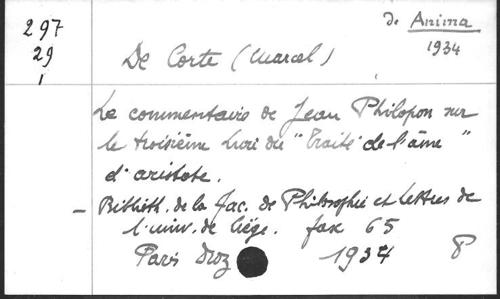 297
29
1
de Anima
1934
De Corte (Marcel)
Le commentaire de Jean Philopon sur
le troisième livre du "Traité de l'âme"
d'aristote.
- Biblioth. de la Fac. de Philosophie et Lettres de
l'univ. de Liège. fax 65
Paris Droz 1934 P